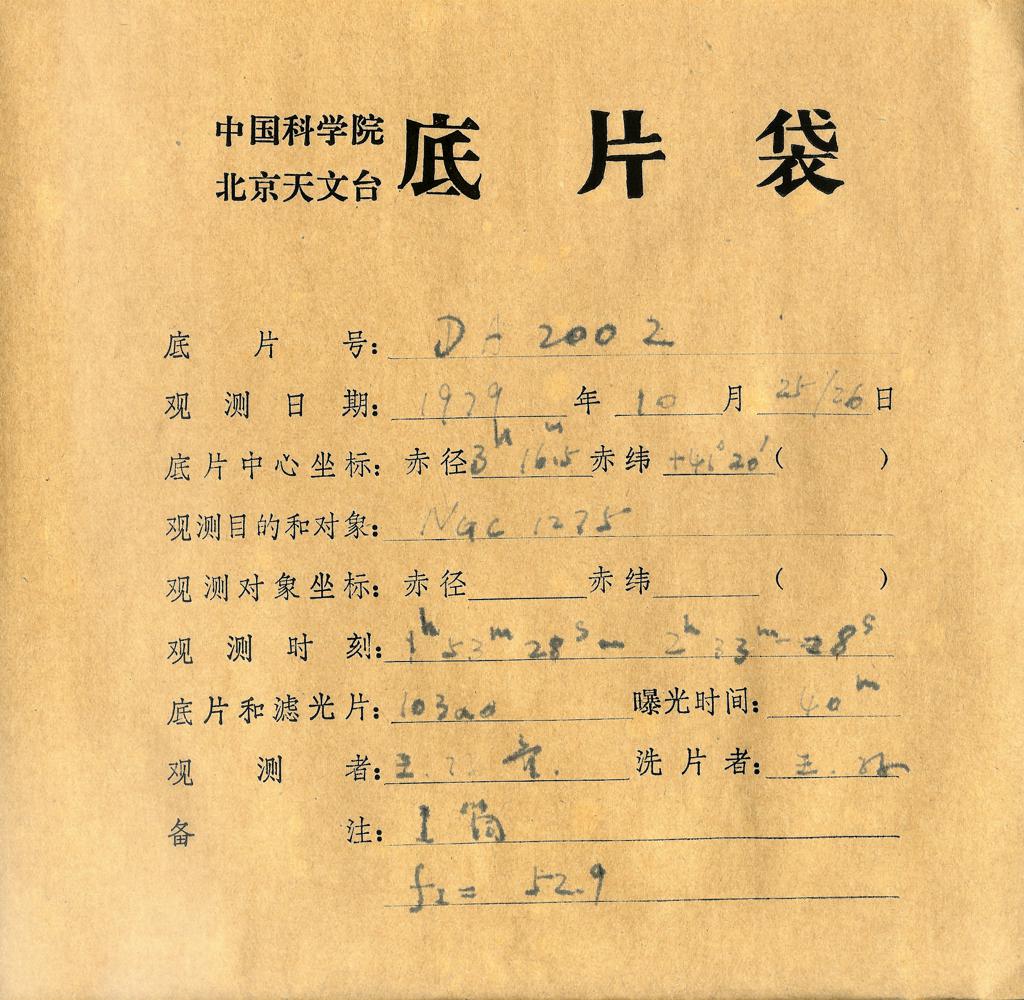 中国科学院
北京天文台
底片袋
底片号: DA 2002
观测日期: 1979年10月25/26日
底片中心坐标: 赤径3h 16m.5 赤纬+41°20′( )
观测目的和对象: NGC 1275
观测对象坐标: 赤径 赤纬 ( )
观测时刻: 1h 53m 28s — 2h 33m 28s
底片和滤光片: 103aO 曝光时间: 40m
观测者: 王. 洗片者: 王.
备注: I 筒
fI = 52.9